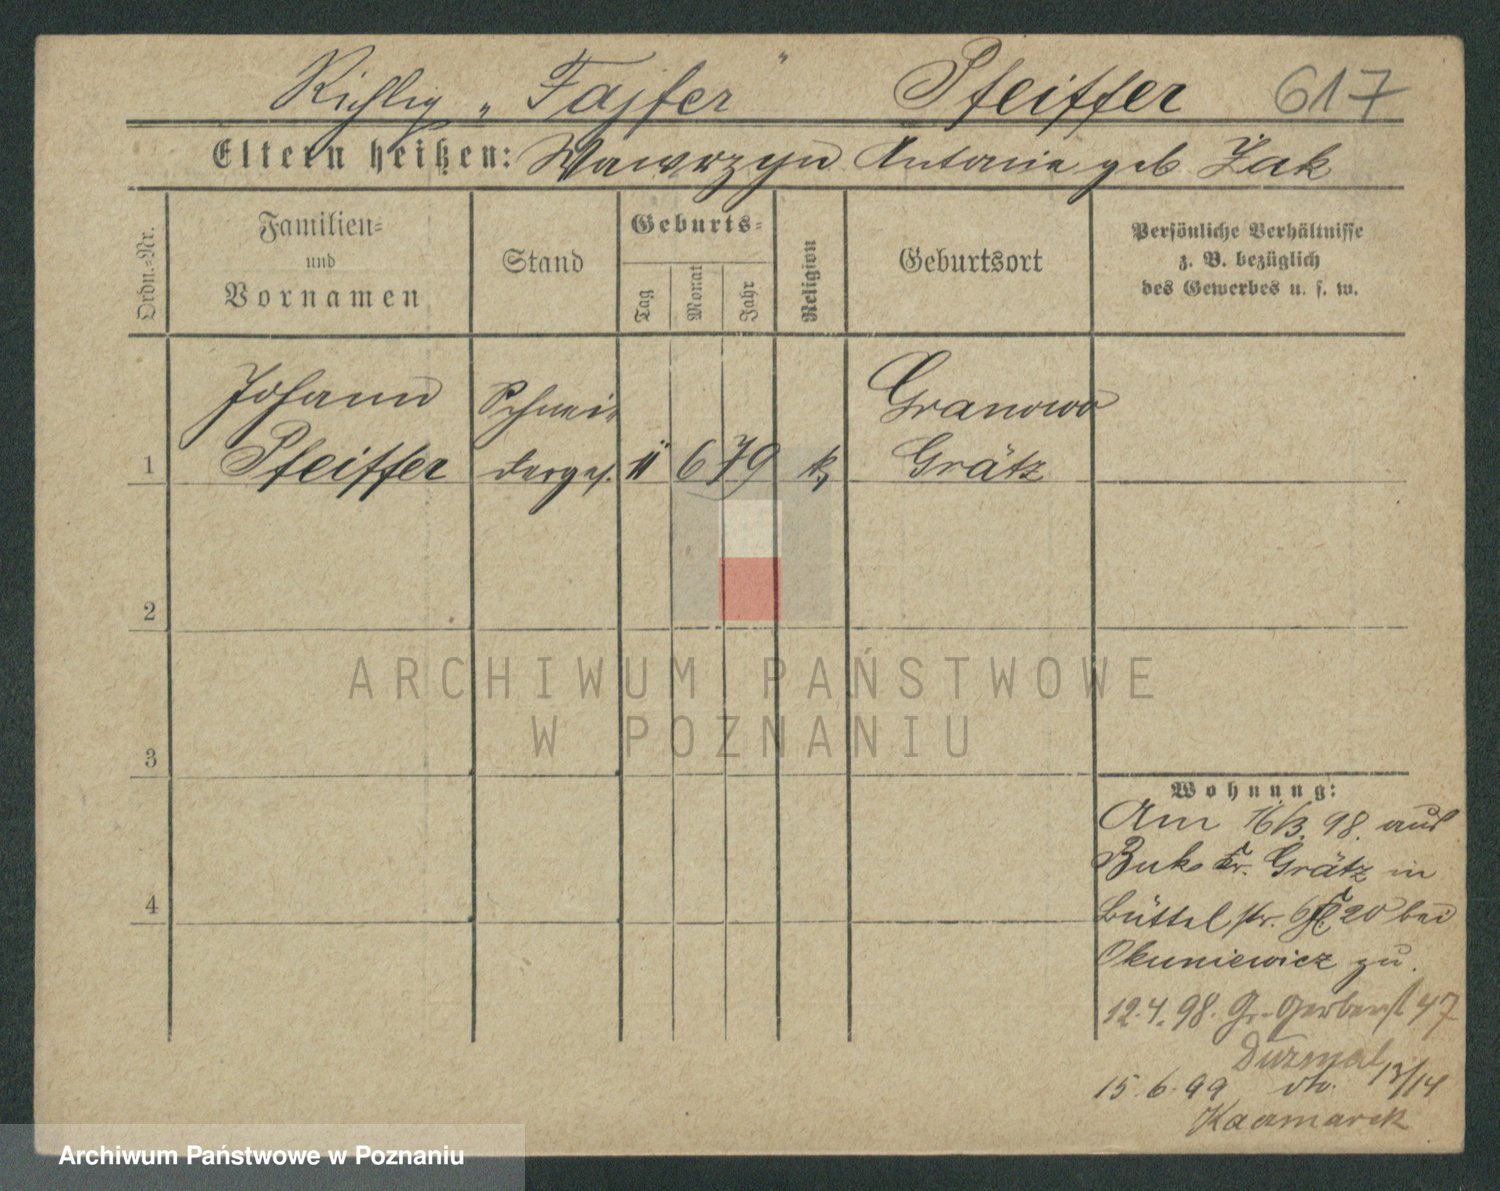 Richtig „Fajfer" Pfeiffer 617
Eltern heißen: Wawrzyn Antonie geb Żak
Ordn.-Nr.
Familien-
und
Vornamen
Stand
Geburts-
Tag
Monat
Jahr
Religion
Geburtsort
Persönliche Verhältnisse
z. B. bezüglich
des Gewerbes u. s. w.
Johann Schnei- Granowo
1 Pfeiffer derges. 11 6 79 k. Grätz
2
ARCHIWUM PAŃSTWOWE
W POZNANIU
3
Wohnung:
Am 16/3. 98. aus
Buk Kr. Grätz in
4
Büttelstr. 20 bei
Okuniewicz zu.
12.4.98. Gr. Gerberst 47
15.6.99 dto. 13/14
Kaczmarek
Archiwum Państwowe w Poznaniu